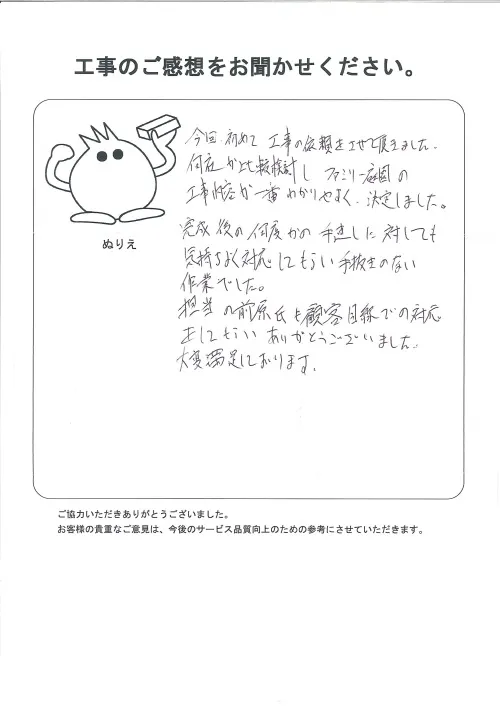 工事のご感想をお聞かせください。
ぬりえ
今回初めて工事の依頼をさせて頂きました。
何社か比較検討し ファミリー庭園の
工事内容が一番わかりやすく、決定しました。
完成後の何度かの手直しに対しても
気持ちよく対応してもらい手抜きのない
作業でした。
担当の前原氏も顧客目線での対応
をしてもらいありがとうございました。
大変満足しております。
ご協力いただきありがとうございました。
お客様の貴重なご意見は、今後のサービス品質向上のための参考にさせていただきます。